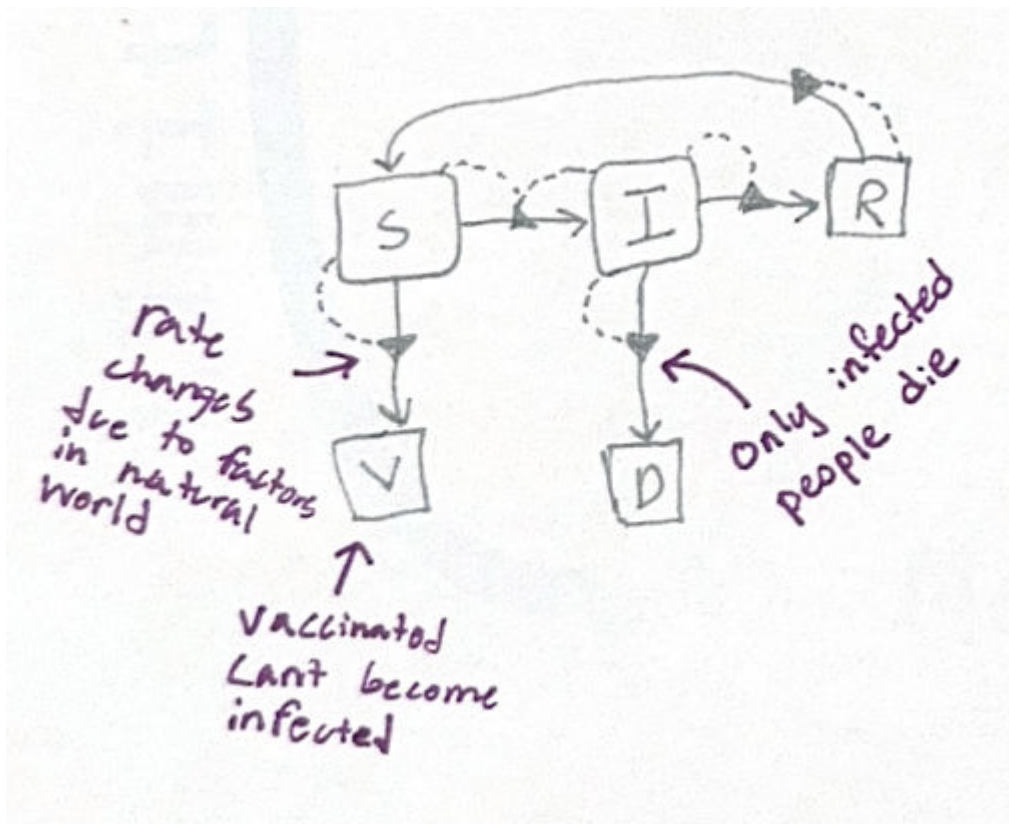 S
I
R
V
D
rate
changes
due to factors
in natural
world
Only infected
people die
Vaccinated
Can't become
infected